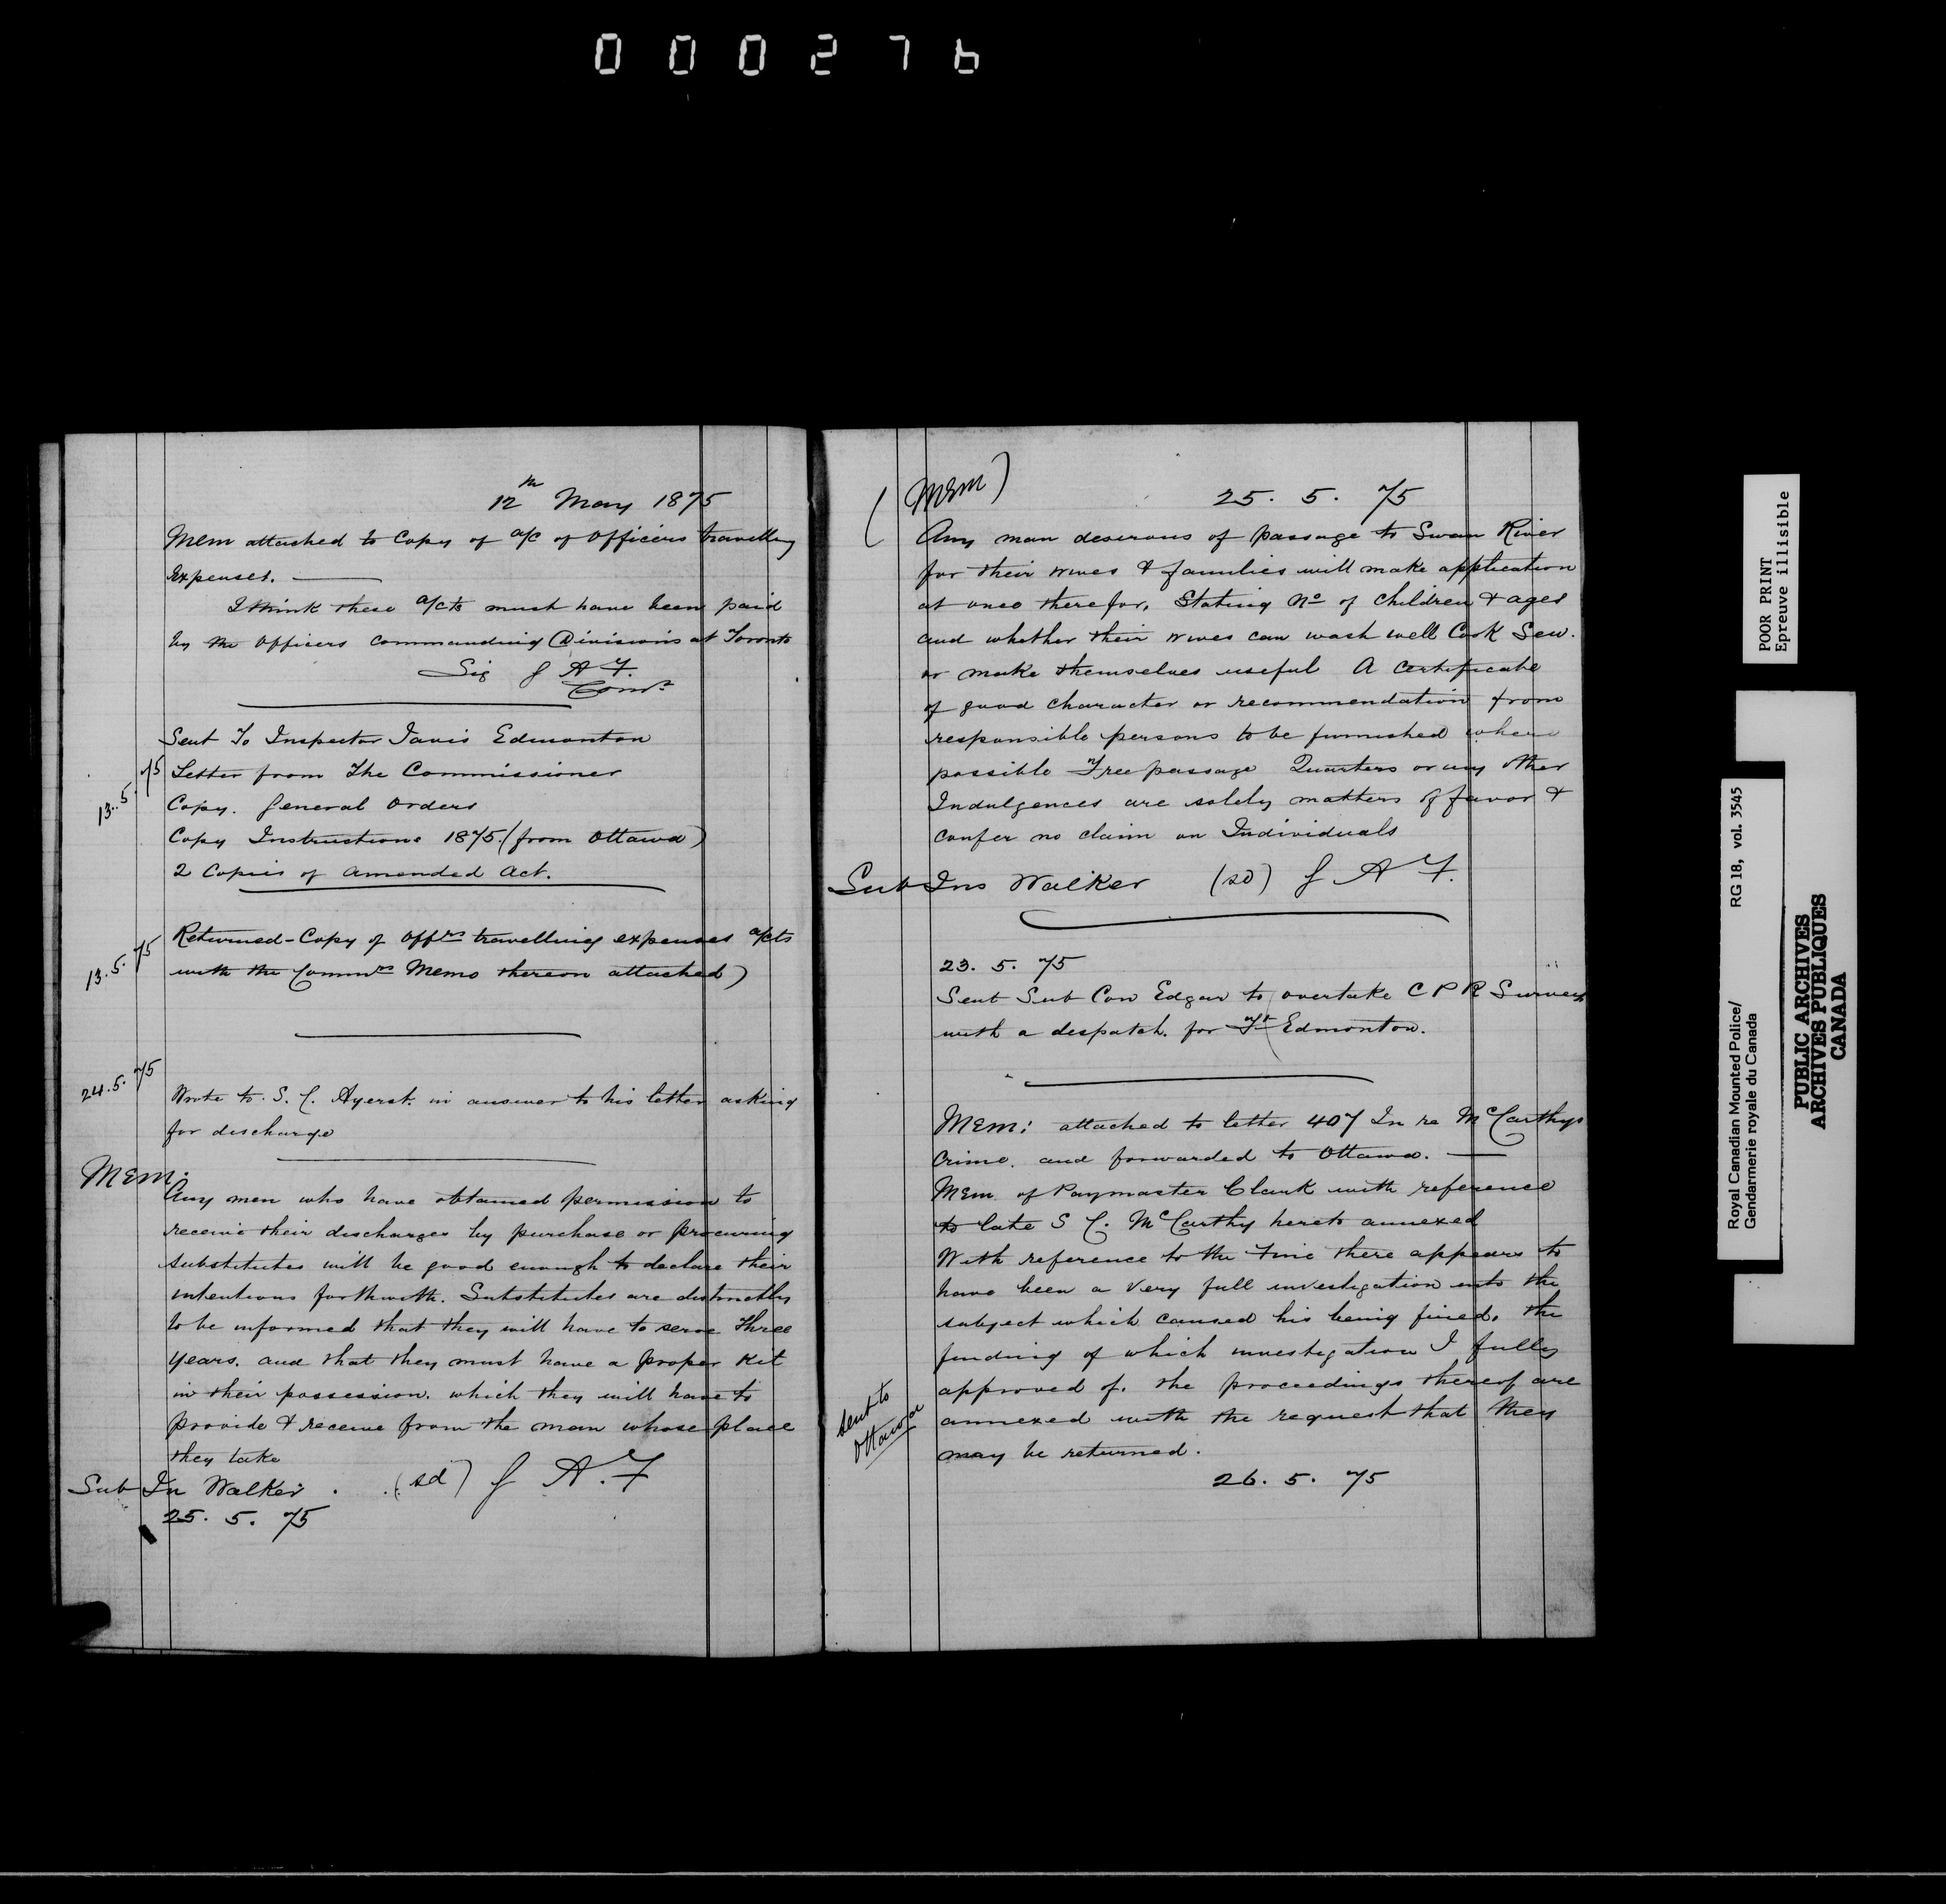 000276
12th May 1875
Mem attached to Copy of a/c of Officers travelling
Expenses.
I think these a/cts must have been paid
by the Officers Commanding Divisions at Toronto
Sig G A F.
Comr
Sent To Inspector Javis Edmonton
13.5.75
Letter from The Commissioner
Copy. General Orders
Copy Instructions 1875. (from Ottawa)
2 Copies of Amended Act.
13.5.75
Returned - Copy of Offrs travelling expenses a/cts
with the Commrs Memo thereon attached)
24.5.75
Wrote to S. C. Ayerst. in answer to his letter asking
for discharge
Mem.
Any men who have obtained permission to
receive their discharges by purchase or procuring
substitutes will be good enough to declare their
intentions forthwith. Substitutes are distinctly
to be informed that they will have to serve Three
years. and that they must have a proper Kit
in their possession. which they will have to
provide & receive from the man whose place
they take
Sub In Walker. (sd) G A. F
25. 5. 75
(Mem) 25. 5. 75
Any man desirous of passage to Swan River
for their wives & families will make application
at once therefor, Stating No of Children & ages
and whether their wives can wash well Cook Sew.
or make themselves useful A Certificate
of good Character or recommendation from
responsible persons to be furnished where
possible Free passage Quarters or any other
Indulgences are solely matters of favor &
confer no claim on Individuals
Sub Ins Walker (sd) G A F.
23. 5. 75
Sent Sub Con Edgar to overtake C P R Survey
with a despatch. for Ft Edmonton.
Mem: attached to letter 407 In re McCarthys
Crime. and forwarded to Ottawa.
Mem of Paymaster Clark with reference
to late S C. McCarthy hereto annexed
With reference to the Fine there appears to
have been a Very full investigation into the
subject which caused his being fined. the
finding of which investigation I fully
approved of. the proceedings thereof are
annexed with the request that they
sent to
Ottawa
may be returned.
26. 5. 75
POOR PRINT
Epreuve illisible
Royal Canadian Mounted Police/ RG 18, vol. 3545
Gendarmerie royale du Canada
PUBLIC ARCHIVES
ARCHIVES PUBLIQUES
CANADA